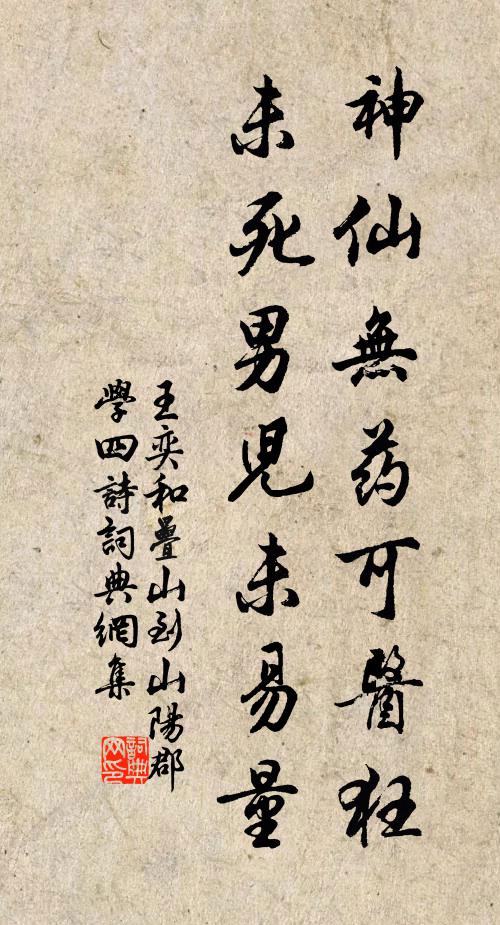 神仙無药可醫狂
未死男児未易量
王奕和疊山到山陽郡
學四詩詞典網集
詞典網印